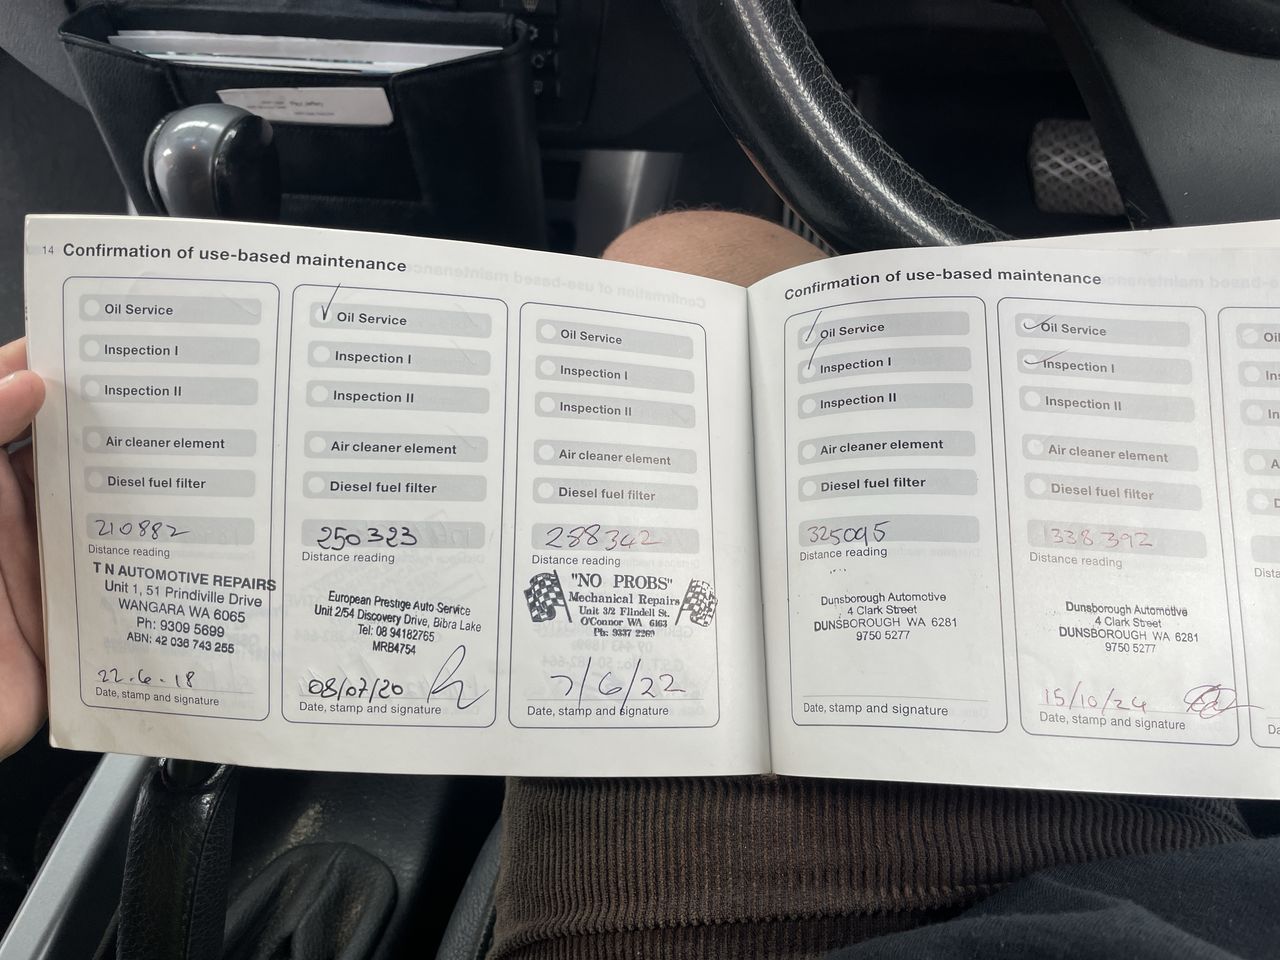 14 Confirmation of use-based maintenance
Oil Service
Inspection I
Inspection II
Air cleaner element
Diesel fuel filter
210882
Distance reading
T N AUTOMOTIVE REPAIRS
Unit 1, 51 Prindiville Drive
WANGARA WA 6065
Ph: 9309 5699
ABN: 42 036 743 255
22-6-18
Date, stamp and signature
Oil Service
Inspection I
Inspection II
Air cleaner element
Diesel fuel filter
250323
Distance reading
European Prestige Auto Service
Unit 2/54 Discovery Drive, Bibra Lake
Tel: 08 94182765
MRB4754
08/07/20
Date, stamp and signature
Oil Service
Inspection I
Inspection II
Air cleaner element
Diesel fuel filter
288342
Distance reading
"NO PROBS"
Mechanical Repairs
Unit 3/2 Flindell St.
O'Connor WA 6163
Ph: 9337 2269
7/6/22
Date, stamp and signature
Confirmation of use-based maintenance
Oil Service
Inspection I
Inspection II
Air cleaner element
Diesel fuel filter
325095
Distance reading
Dunsborough Automotive
4 Clark Street
DUNSBOROUGH WA 6281
9750 5277
Date, stamp and signature
Oil Service
Inspection I
Inspection II
Air cleaner element
Diesel fuel filter
338392
Distance reading
Dunsborough Automotive
4 Clark Street
DUNSBOROUGH WA 6281
9750 5277
15/10/24
Date, stamp and signature
Oil
Ins
In
A
D
Dista
Da